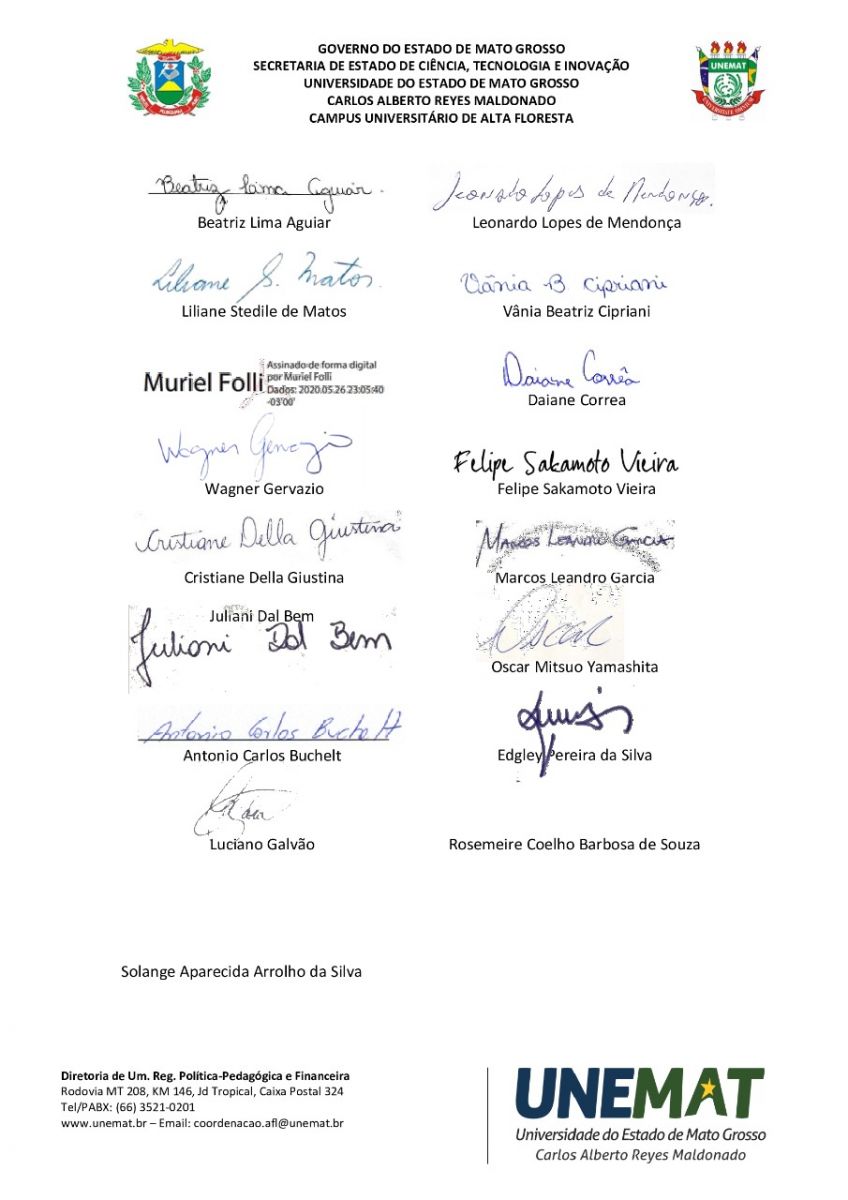 GOVERNO DO ESTADO DE MATO GROSSO
SECRETARIA DE ESTADO DE CIÊNCIA, TECNOLOGIA E INOVAÇÃO
UNIVERSIDADE DO ESTADO DE MATO GROSSO
CARLOS ALBERTO REYES MALDONADO
CAMPUS UNIVERSITÁRIO DE ALTA FLORESTA
UNEMAT
Beatriz Lima Aguiar.
Leonardo Lopes de Mendonça.
Beatriz Lima Aguiar
Leonardo Lopes de Mendonça
Liliane S. Matos.
Vânia B Cipriani
Liliane Stedile de Matos
Vânia Beatriz Cipriani
Muriel Folli
Assinado de forma digital
por Muriel Folli
Dados: 2020.05.26 23:05:40
-03'00'
Daiane Corrêa
Daiane Correa
Wagner Gervazio
Felipe Sakamoto Vieira
Wagner Gervazio
Felipe Sakamoto Vieira
Cristiane Della Giustina
Marcos Leandro Garcia
Cristiane Della Giustina
Marcos Leandro Garcia
Juliani Dal Bem
Juliani Dal Bem
Oscar
Oscar Mitsuo Yamashita
Antonio Carlos Buchelt
Antonio Carlos Buchelt
Edgley Pereira da Silva
Luciano Galvão
Rosemeire Coelho Barbosa de Souza
Solange Aparecida Arrolho da Silva
Diretoria de Um. Reg. Política-Pedagógica e Financeira
Rodovia MT 208, KM 146, Jd Tropical, Caixa Postal 324
Tel/PABX: (66) 3521-0201
www.unemat.br – Email: coordenacao.afl@unemat.br
UNEMAT
Universidade do Estado de Mato Grosso
Carlos Alberto Reyes Maldonado